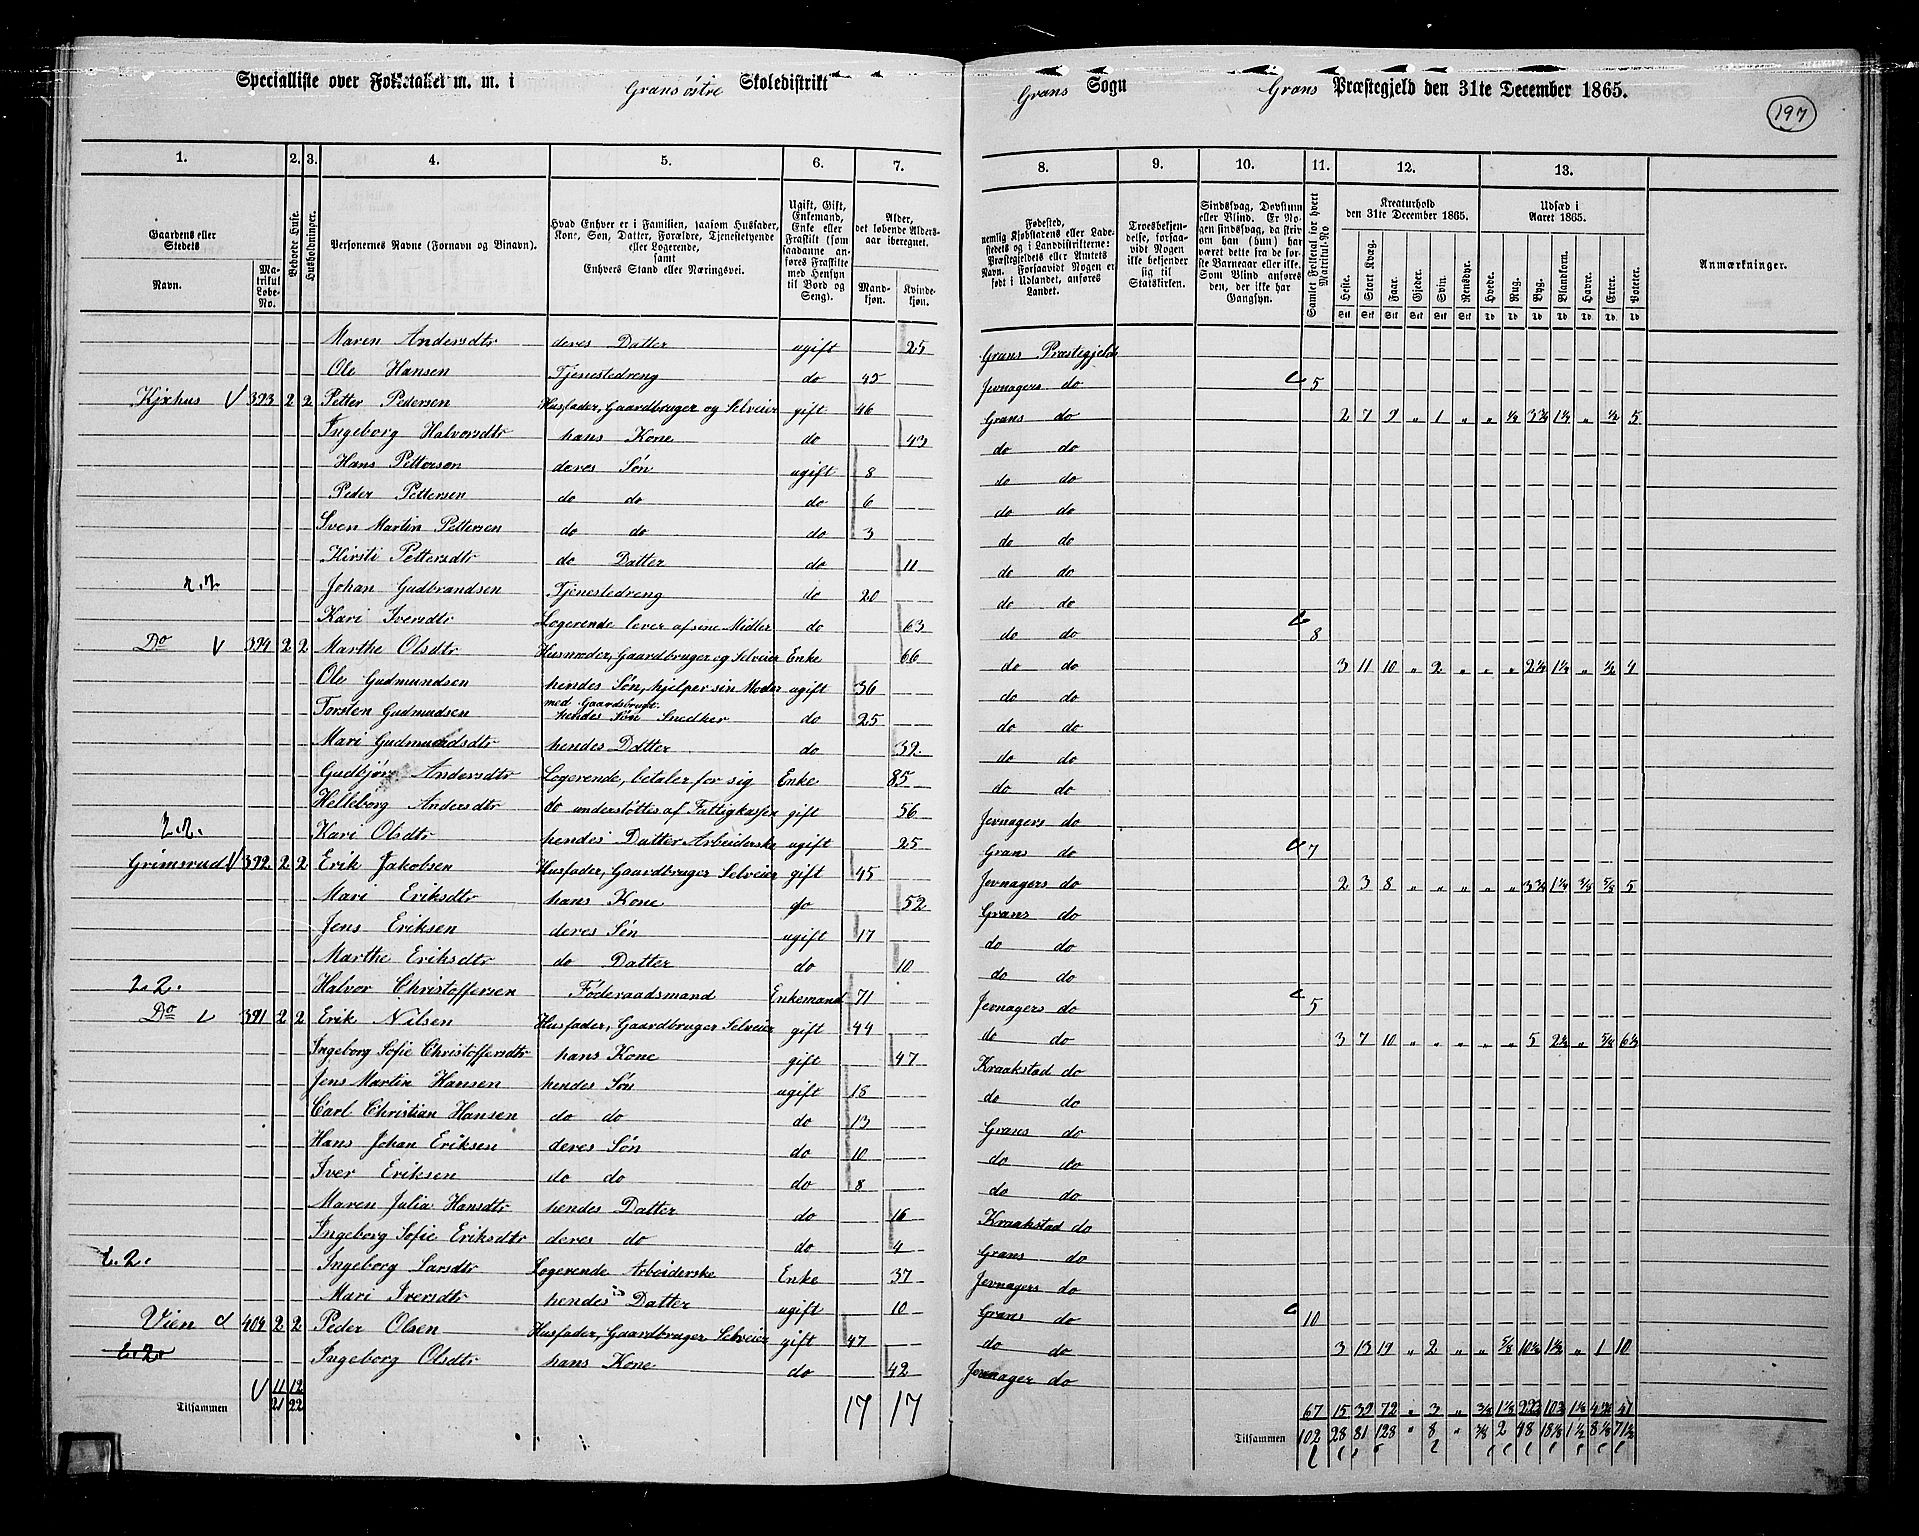 Specialliste over Folketallet m. m. i Grans østre Skoledistrikt Grans Sogn Grans Præstegjeld den 31te December 1865.
197
1. 2. 3. 4. 5. 6. 7. 8. 9. 10. 11. 12. 13.
Gaardens eller Stedets
Navn.
Matrikul Løbe-No.
Beboede Huse.
Husholdninger.
Personernes Navne (Fornavn og Binavn).
Hvad Enhver er i Familien, saasom Husfader, Kone, Søn, Datter, Forældre, Tjenestetyende eller Logerende, samt Enhvers Stand eller Næringsvei.
Ugift, Gift, Enkemand, Enke eller Fraskilt (som saadanne anføres Fraskilte med Hensyn til Bord og Seng).
Alder, det løbende Alders-aar iberegnet.
Mandkjøn. Kvindekjøn.
Fødested, nemlig Kjøbstadens eller Ladestedets og i Landdistrikterne: Præstegjeldets eller Amtets Navn. Forsaavidt Nogen er født i Udlandet, anføres Landet.
Troesbekjendelse, forsaavidt Nogen ikke bekjender sig til Statskirken.
Sindssvag, Døvstum eller Blind. Er Nogen sindssvag, da skrives om han (hun) har været dette fra de første Barneaar eller ikke. Som Blind anføres den, der ikke har Gangsyn.
Samlet Folketal for hvert Matrikul-No
Kreaturhold den 31te December 1865.
Heste. Stort Kvæg. Faar. Gjeder. Svin. Rensdyr.
Udsæd i Aaret 1865.
Hvede. Rug. Byg. Blandkorn. Havre. Erter. Poteter.
Anmærkninger.
Maren Andersdtr deres Datter ugift 25 Grans Præstegjeld
Ole Hansen Tjenestedreng do 45 Jevnagers do 5
Kjxhus V 393 2 2 Petter Pedersen Husfader, Gaardbruger og Selveier gift 46 Grans do 2 7 9 „ 1 „ „ ½ 3¾ 1½ „ ½ 5
Ingeborg Halvorsdtr hans Kone do 43 do do
Hans Pettersen deres Søn ugift 8 do do
Peder Pettersen do do do 6 do do
Sven Martin Pettersen do do do 3 do do
Kirsti Pettersdtr do Datter do 11 do do
2.2. Johan Gudbrandsen Tjenestedreng do 20 do do
Kari Iversdtr Logerende lever af sine Midler do 63 do do 8
Do V 394 2 2 Marthe Olsdtr Husmoder, Gaardbruger og Selveier Enke 66 do do 3 11 10 „ 2 „ „ „ 2½ 1¼ „ ½ 4
Ole Gudmundsen hendes Søn, hjelper sin Moder med Gaardsbruget ugift 36 do do
Torsten Gudmudsen hendes Søn Snedker do 25 do do
Mari Gudmundsdtr hendes Datter do 32 do do
Gudbjør Andersdtr Logerende, betaler for sig Enke 85 do do
Helleborg Andersdtr do understøttes af Fattigkassen gift 56 Jevnagers do
2.2. Kari Olsdtr hendes Datter Arbeiderske ugift 25 Grans do 7
Grimsrud V 392 2 2 Erik Jakobsen Husfader, Gaardbruger Selveier gift 45 Jevnagers do 2 3 8 „ „ „ „ „ 3¾ 1¼ ⅜ ⅝ 5
Mari Eriksdtr hans Kone do 52 Grans do
Jens Eriksen deres Søn ugift 17 do do
Marthe Eriksdtr do Datter do 10 do do
2.2. Halvor Christoffersen Føderaadsmand Enkemand 71 Jevnagers do 5
Do V 391 2 2 Erik Nilsen Husfader, Gaardbruger Selveier gift 44 do do 3 7 10 „ „ „ „ „ 5 2½ „ ¾ 6½
Ingeborg Sofie Christoffersdtr hans Kone gift 47 Kraakstad do
Jens Martin Hansen hendes Søn ugift 18 do do
Carl Christian Hansen do do do 13 Grans do
Hans Johan Eriksen deres Søn do 10 do do
Iver Eriksen do do do 8 do do
Maren Julia Hansdtr hendes Datter do 16 Kraakstad do
Ingeborg Sofie Eriksdtr deres do do 4 Grans do
2.2. Ingeborg Larsdtr Logerende Arbeiderske Enke 37 Jevnagers do
Mari Iversdtr hendes Datter ugift 10 Grans do 10
Vien 404 2 2 Peder Olsen Husfader, Gaardbruger Selveier gift 47 do do 3 13 19 „ 2 „ „ ⅝ 10½ 1½ „ 1 10
2.2. Ingeborg Olsdtr hans Kone do 42 Jevnager do
V 11 12 17 17 67 15 32 72 „ 3
Tilsammen 21 22 Tilsammen 102 28 81 128 „ 8 „ ⅜ 2 48